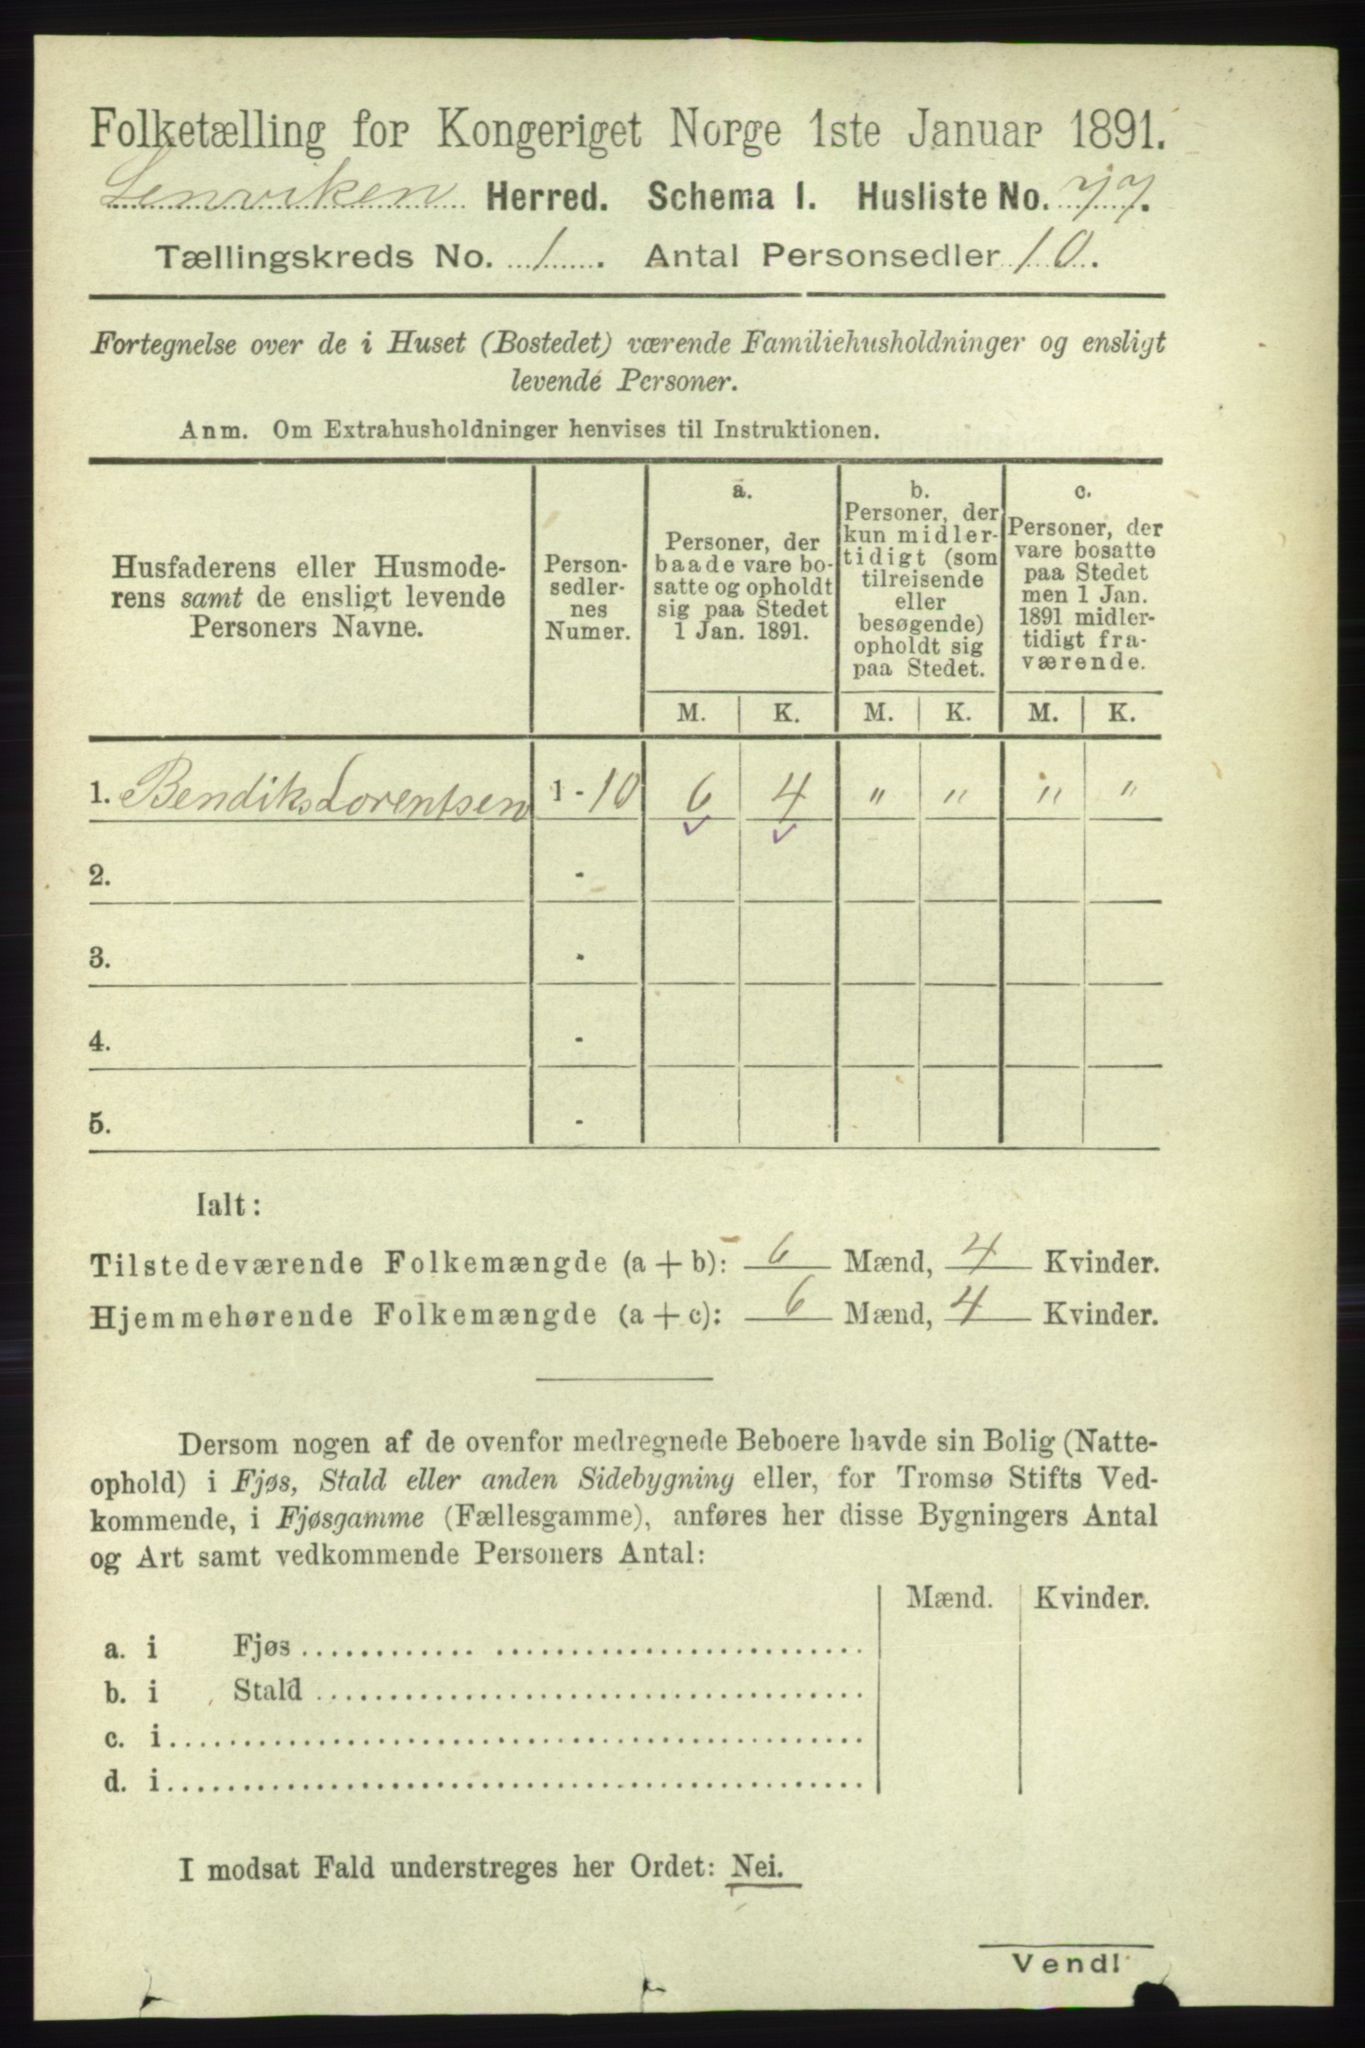 Folketælling for Kongeriget Norge 1ste Januar 1891.
Lenviken Herred. Schema I. Husliste No. 77.
Tællingskreds No. 1. Antal Personsedler 10.
Fortegnelse over de i Huset (Bostedet) værende Familiehusholdninger og ensligt
levende Personer.
Anm. Om Extrahusholdninger henvises til Instruktionen.
Husfaderens eller Husmode-
rens samt de ensligt levende
Personers Navne.
Person-
sedler-
nes
Numer.
a.
Personer, der
baade vare bo-
satte og opholdt
sig paa Stedet
1 Jan. 1891.
b.
Personer, der
kun midler-
tidigt (som
tilreisende
eller
besøgende)
opholdt sig
paa Stedet.
c.
Personer, der
vare bosatte
paa Stedet
men 1 Jan.
1891 midler-
tidigt fra-
værende.
M. K. M. K. M. K.
1. Bendiks Lorentsen 1 - 10 6 4 " " " "
2. -
3. -
4. -
5. -
Ialt:
Tilstedeværende Folkemængde (a + b): 6 Mænd, 4 Kvinder.
Hjemmehørende Folkemængde (a + c): 6 Mænd, 4 Kvinder.
Dersom nogen af de ovenfor medregnede Beboere havde sin Bolig (Natte-
ophold) i Fjøs, Stald eller anden Sidebygning eller, for Tromsø Stifts Ved-
kommende, i Fjøsgamme (Fællesgamme), anføres her disse Bygningers Antal
og Art samt vedkommende Personers Antal:
Mænd. Kvinder.
a. i Fjøs
b. i Stald
c. i
d. i
I modsat Fald understreges her Ordet: Nei.
Vend!